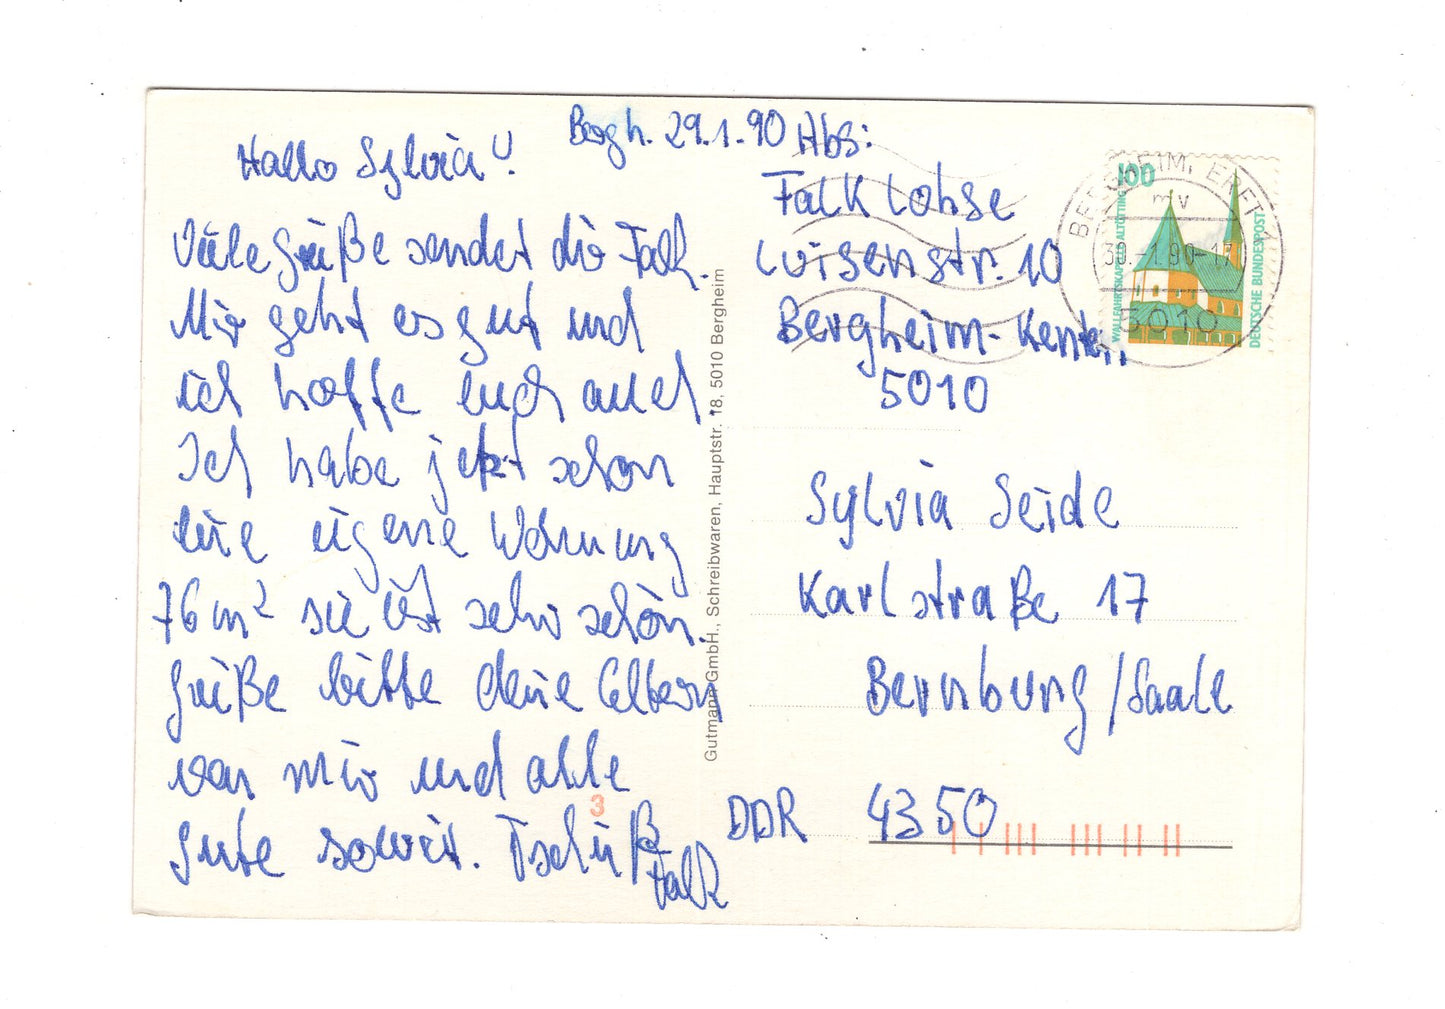 Bergh. 29.1.90
Hallo Sylvia!
Viele Grüße sendet dir Falk.
Mir geht es gut und
ich hoffe euch auch.
Ich habe jetzt schon
eine eigene Wohnung
76 m² sie ist sehr schön.
Grüße bitte deine Eltern
von mir und alle
Gute soweit. Tschüß
Falk
Abs:
Falk Lohse
Luisenstr. 10
Bergheim-Kenten
5010
Sylvia Seide
Karlstraße 17
Bernburg/Saale
DDR 4350
Gutmann GmbH., Schreibwaren, Hauptstr. 18, 5010 Bergheim
3
100
WALLFAHRTSKAPELLE ALTÖTTING
DEUTSCHE BUNDESPOST
BERGHEIM, ERFT 1
mv
30.-1.90-17
5010